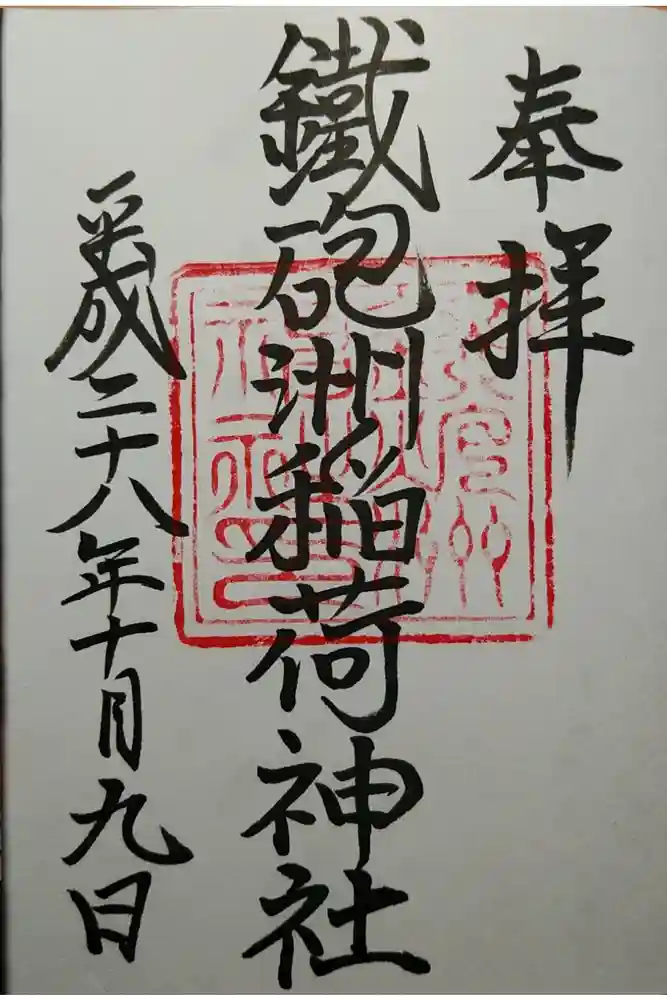 奉拜
鐵砲洲稲荷神社
平成二十八年十月九日